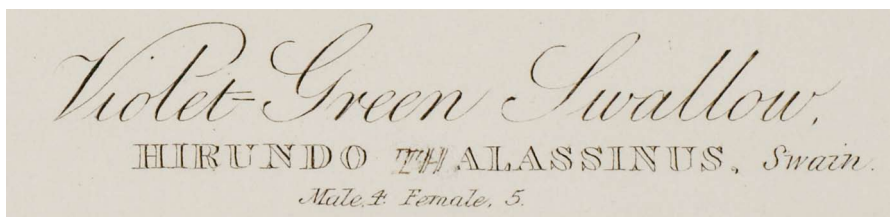 Violet=Green Swallow.
HIRUNDO THALASSINUS, Swain.
Male, 4. Female, 5.